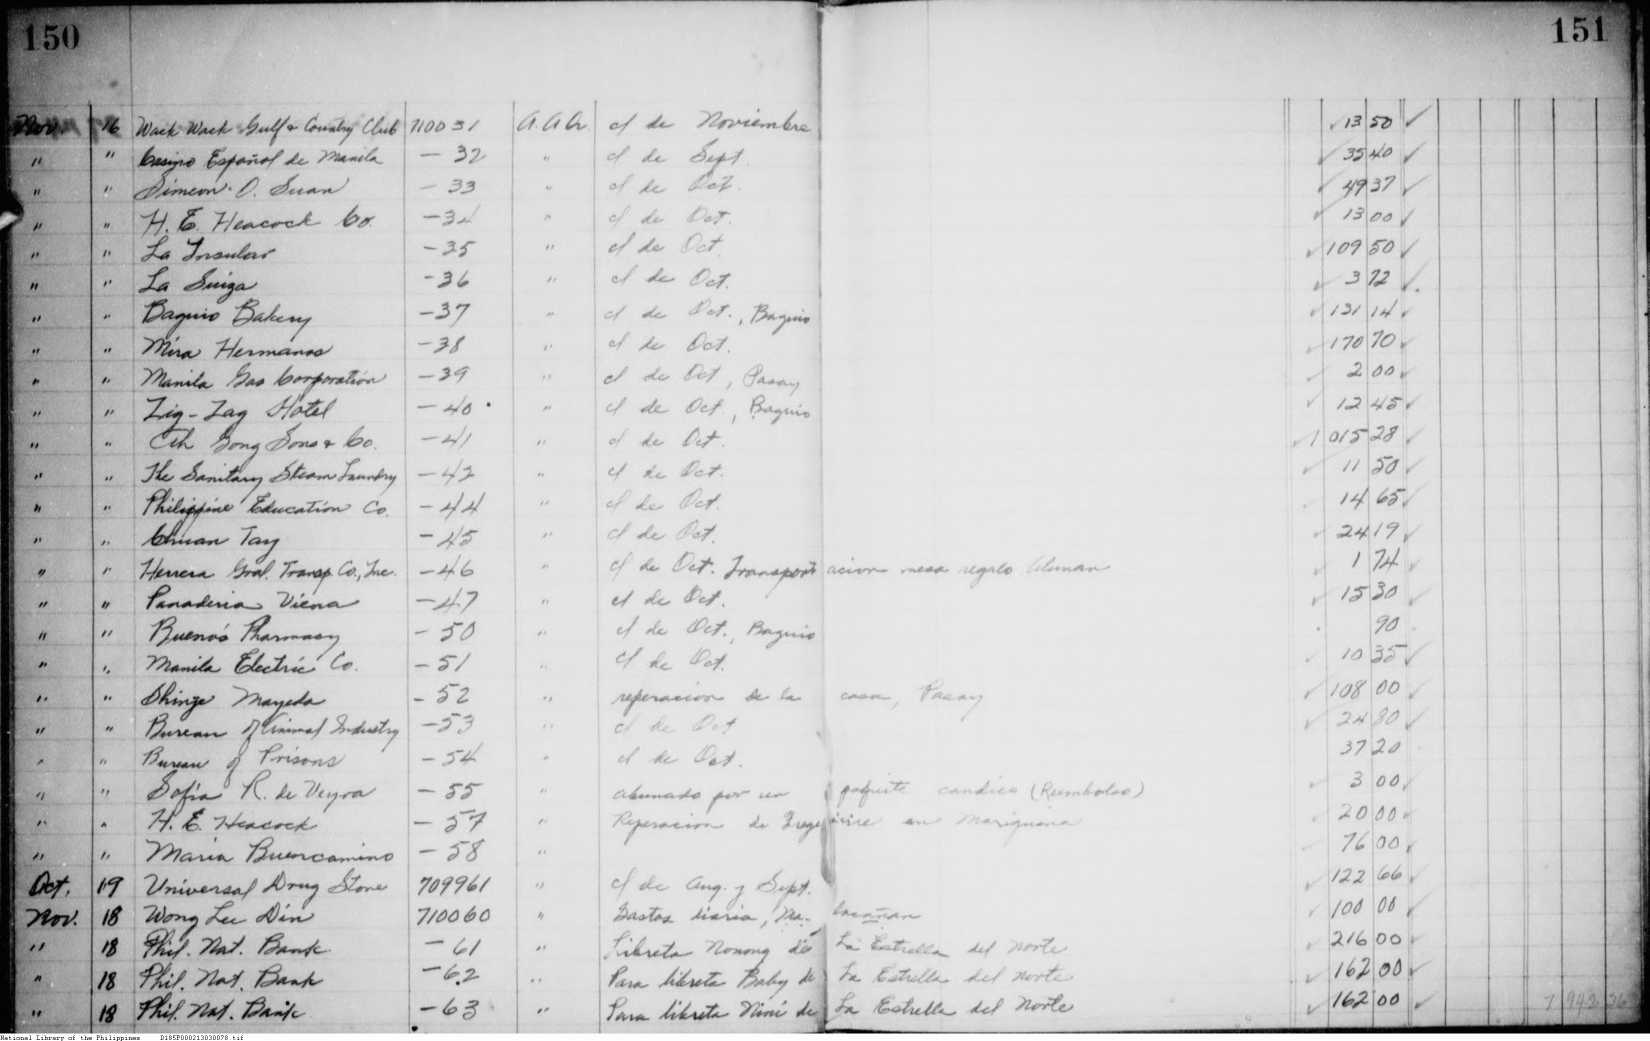 150
151
Nov. 16 Wack Wack Gulf & Country Club 710031 A.A.Ar. cl de Noviembre 13 50
" " Casino Español de Manila — 32 " cl de Sept. 35 40
" " Simeon O. Suan — 33 " cl de Oct. 49 37
" " H. E. Heacock Co. — 34 " cl de Oct. 13 00
" " La Insular — 35 " cl de Oct. 109 50
" " La Suiza — 36 " cl de Oct. 3 72
" " Baguio Bakery — 37 " cl de Oct., Baguio 131 14
" " Mira Hermanos — 38 " cl de Oct. 170 70
" " Manila Gas Corporation — 39 " cl de Oct, Pasay 2 00
" " Zig-Zag Hotel — 40 " cl de Oct., Baguio 12 45
" " Gong Sons & Co. — 41 " cl de Oct. 1 015 28
" " The Sanitary Steam Laundry — 42 " cl de Oct. 11 50
" " Philippine Education Co. — 44 " cl de Oct. 14 65
" " Chuan Tay — 45 " cl de Oct. 24 19
" " Herrera Gral. Transp. Co., Inc. — 46 " cl de Oct. Transportacion mesa regalo 1 74
" " Panaderia Viena — 47 " cl de Oct. 15 30
" " Bueno's Pharmacy — 50 " cl de Oct., Baguio 90
" " Manila Electric Co. — 51 " cl de Oct. 10 35
" " Shinze Mayeda — 52 " reperacion de la casa, Pasay 108 00
" " Bureau of Animal Industry — 53 " cl de Oct 24 80
" " Bureau of Prisons — 54 " cl de Oct. 37 20
" " Sofia R. de Veyra — 55 " abunado por un (Reembolso) 3 00
" " H. E. Heacock — 57 " Reperacion de en Mariquina 20 00
" " Maria Buencamino — 58 " 76 00
Oct. 19 Universal Drug Store 709961 " cl de Aug. y Sept. 122 66
Nov. 18 Wong Lee Din 710060 " Gastos diaria, Malacañan 100 00
" 18 Phil. Nat. Bank — 61 " Libreta Nonong de La Estrella del Norte 216 00
" 18 Phil. Nat. Bank — 62 " Para libreta Baby de La Estrella del Norte 162 00
" 18 Phil. Nat. Bank — 63 " Para libreta Nini de La Estrella del Norte 162 00
National Library of the Philippines D185P000213030078.tif